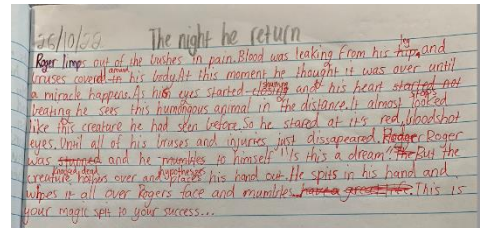 26/10/22 The night he return
Roger limps out of the bushes in pain. Blood was leaking from his leg, and
bruses coverd around his body. At this moment he thought it was over until
a miracle happens. As his eyes started closing and his heart started not
beating he sees this humongous animal in the distance. It almost looked
like this creature he had seen before. So he stared at it's red, bloodshot
eyes. Until all of his bruses and injuries just dissapeared. Roger
was and he mumbles to himself "Is this a dream? But the
creature hovers over and places his hand out. He spits in his hand and
wipes it all over Rogers face and mumbles. This is
your magic spit to your success...